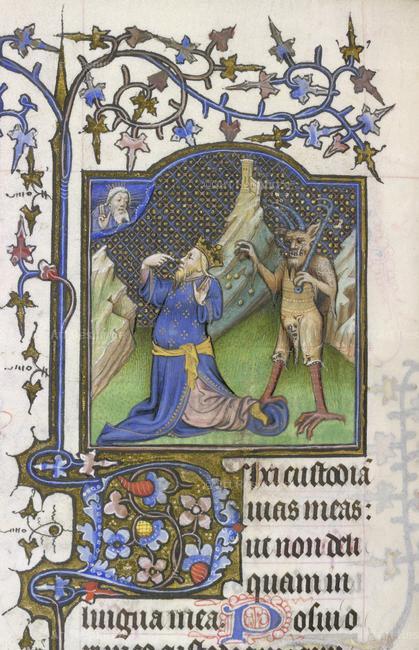 Dixi custodiā
uias meas:
ut non deli
quam in
lingua mea Posui o